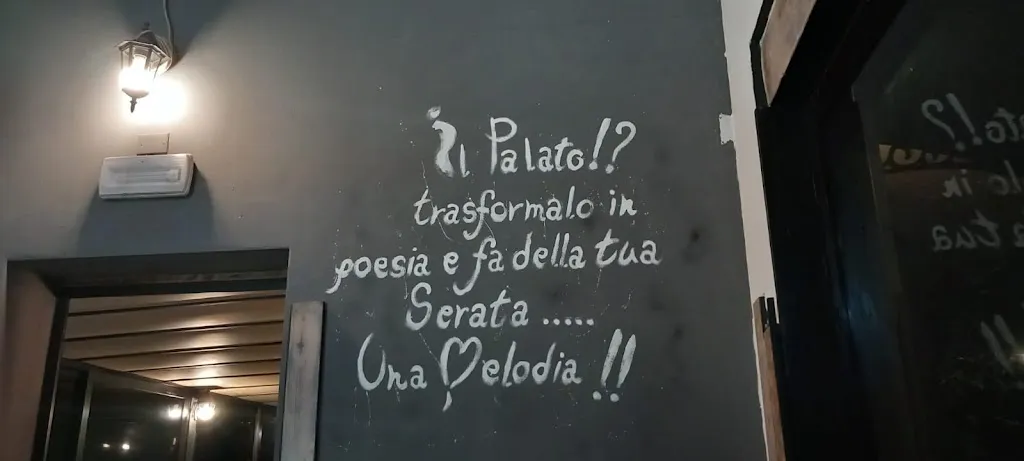 Il Palato!?
trasformalo in
poesia e fa della tua
Serata .....
Una Melodia !!